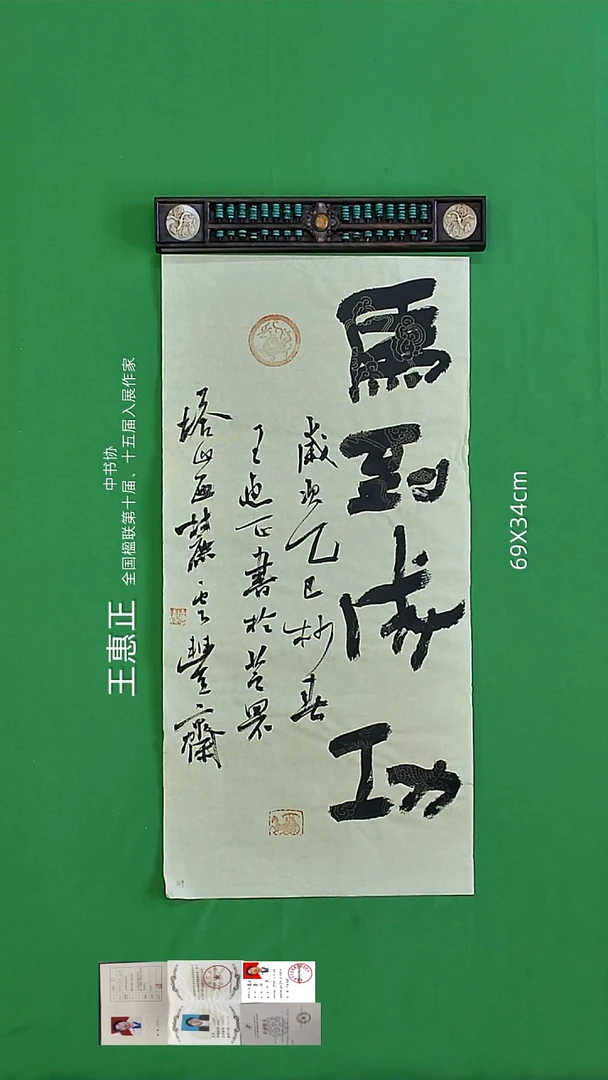 馬到成功
歲次乙巳杪春
王惠正書於芝罘
塔山西麓雲豐齋
中书协
全国楹联第十届、十五届入展作家
王惠正
69X34cm
49